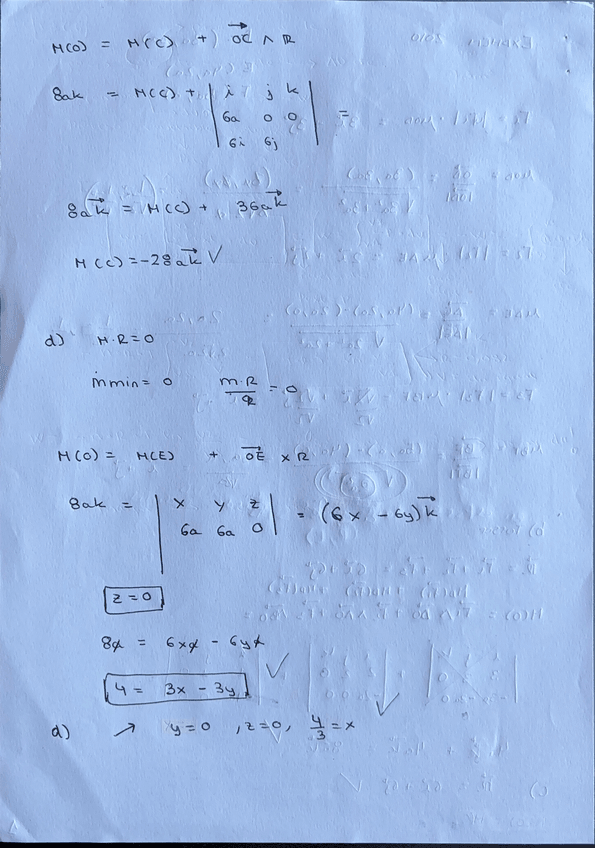 M(O) = M(C) + OC ∧ R
8ak = M(C) + | i j k
6a 0 0
6i 6j | =
8ak = M(C) + 36ak
M(C) = -28ak √
d) M·R=0
m min = 0 m·R/R = 0
M(O) = M(E) + OE x R
8ak = | x y z
6a 6a 0 | = (6x - 6y)k
z = 0
8a = 6xa - 6ya
4 = 3x - 3y
d) → y=0 , z=0, 4/3 = x